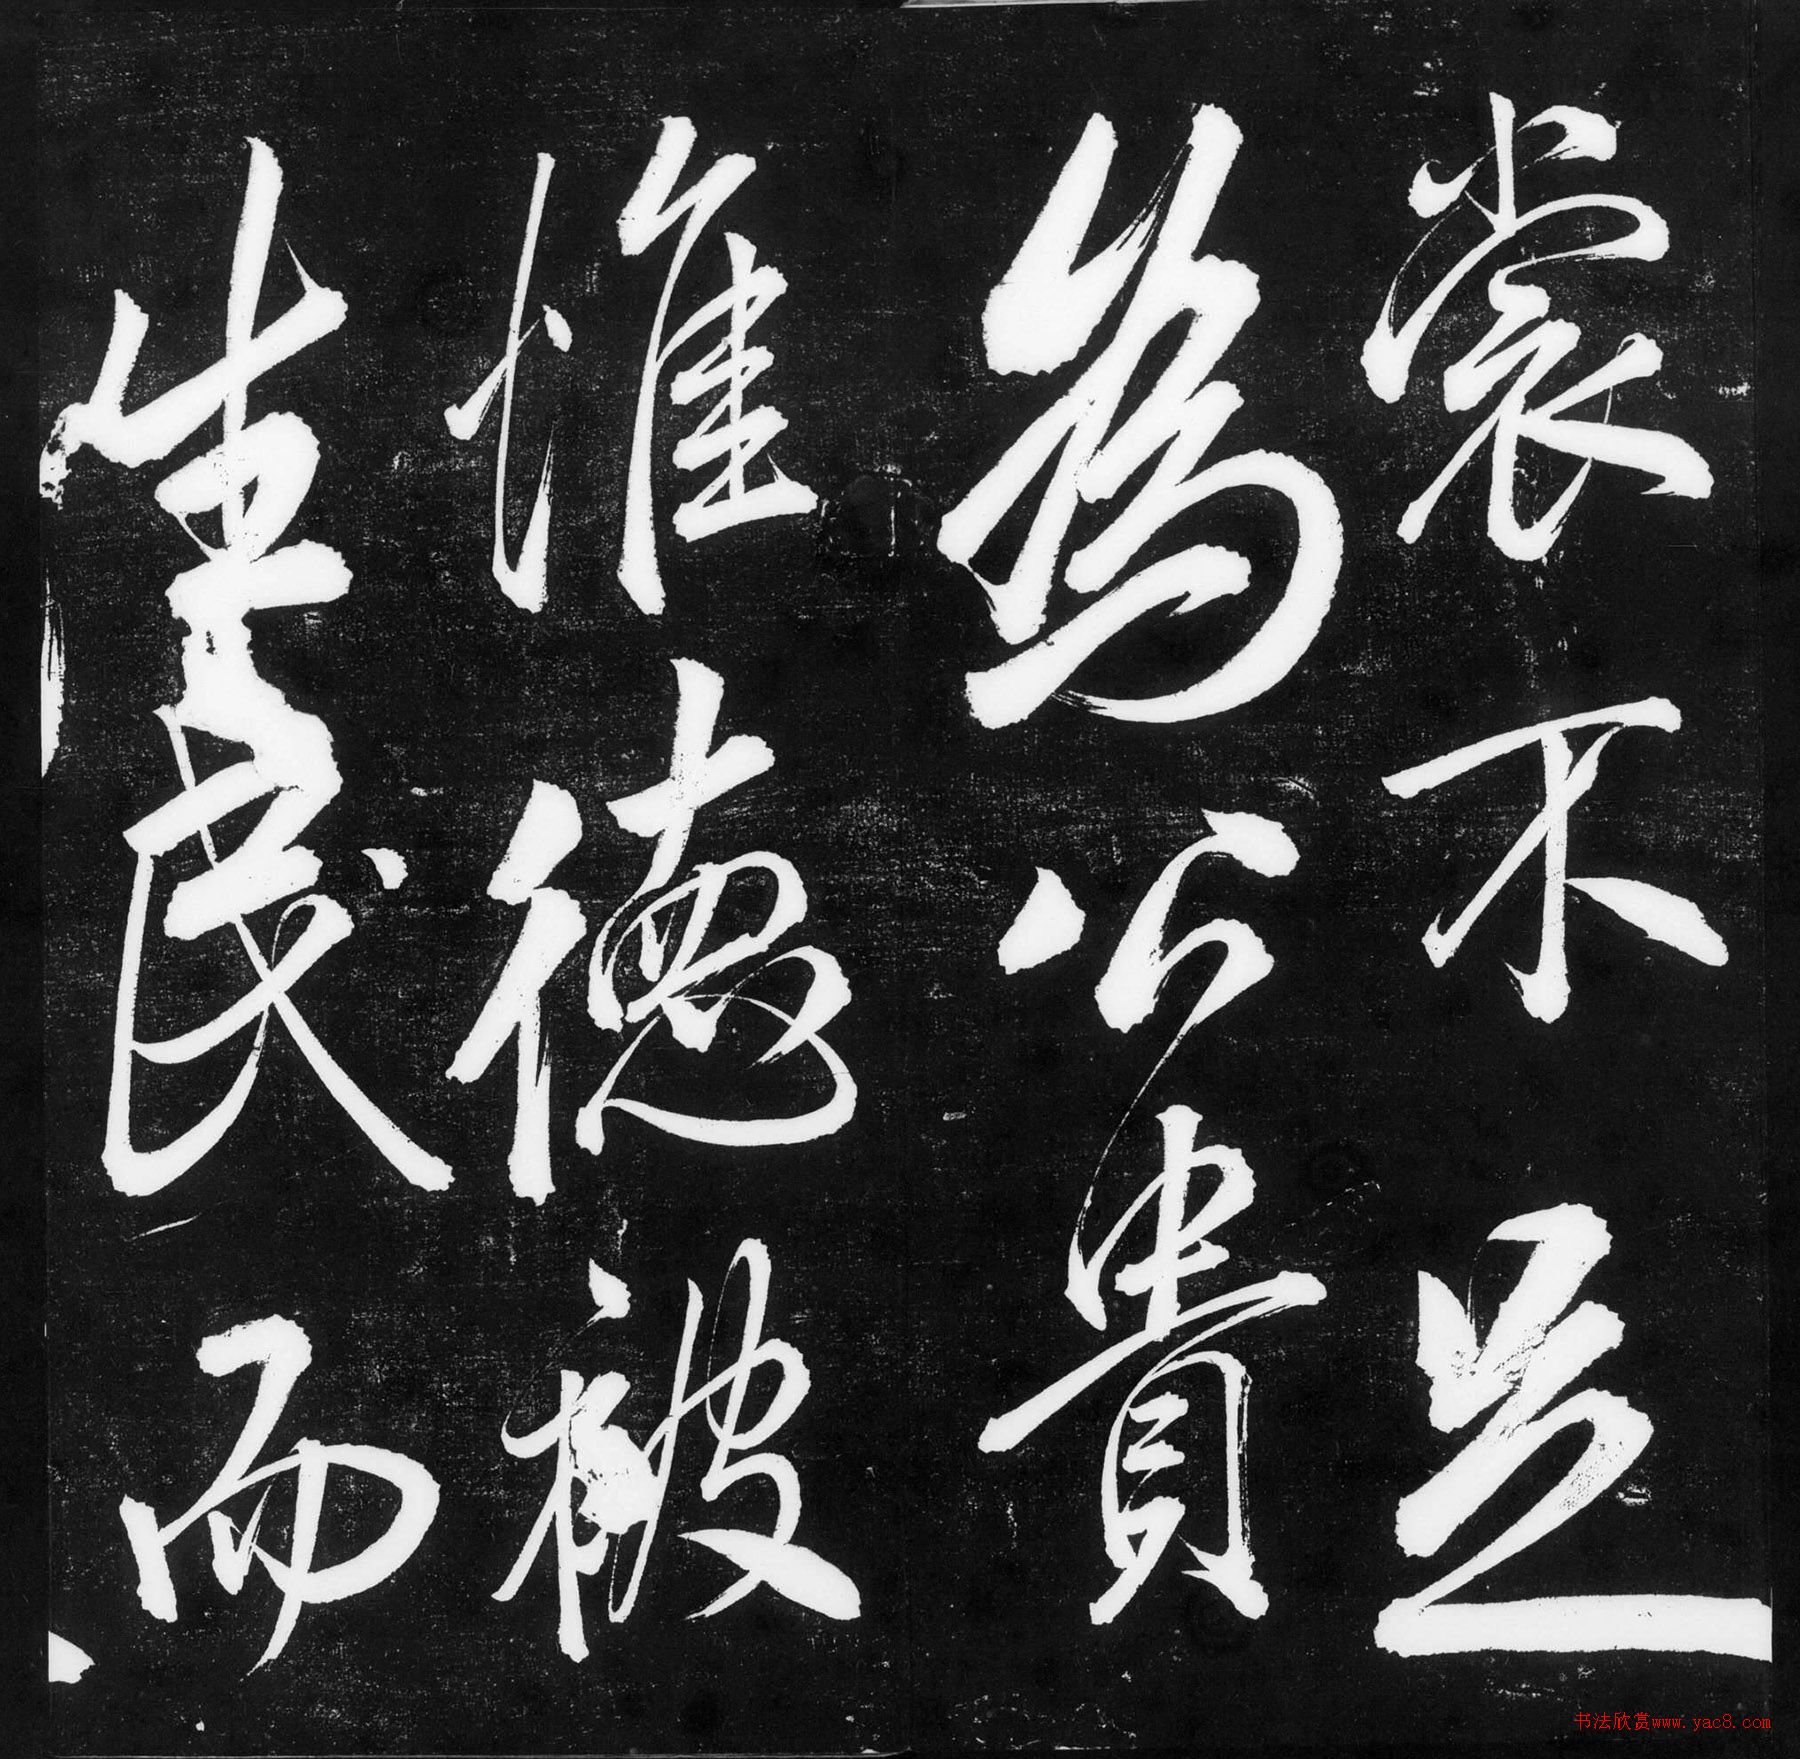 裳不足
為公貴
惟德被
生民而
书法欣赏www.yac8.com